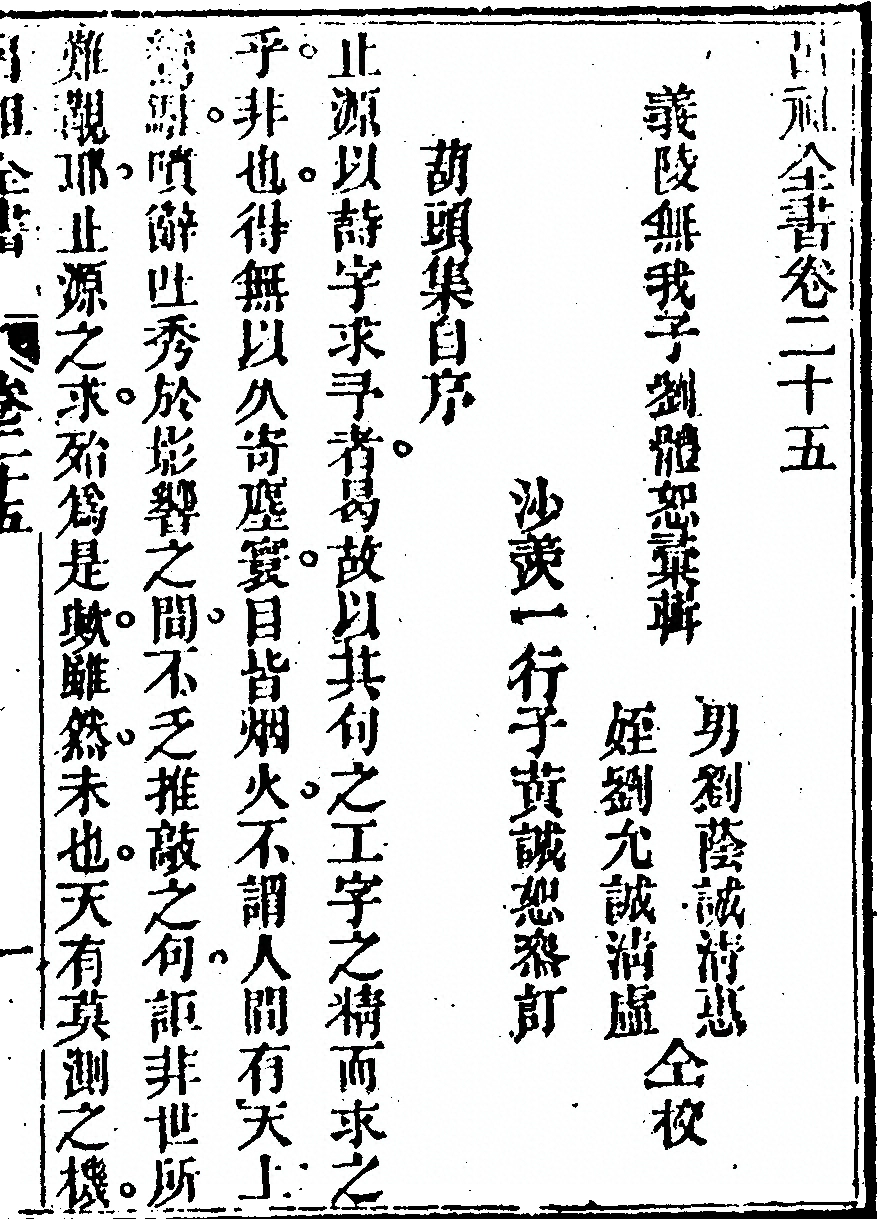 呂祖全書卷二十五
義陵無我子劉體恕彙輯
男劉蔭誠清惠
姪劉允誠清虛
仝校
沙羨一行子黃誠恕叅訂
葫頭集自序
止源以詩字求予者曷故以其句之工字之精而求之
乎非也得無以久寄塵寰目皆烟火不謂人間有天上
鸞驂噴辭吐秀於影響之間不乏推敲之句詎非世所
難覯耶止源之求殆爲是歟雖然未也天有莫測之機
呂祖全書 卷二十五 一